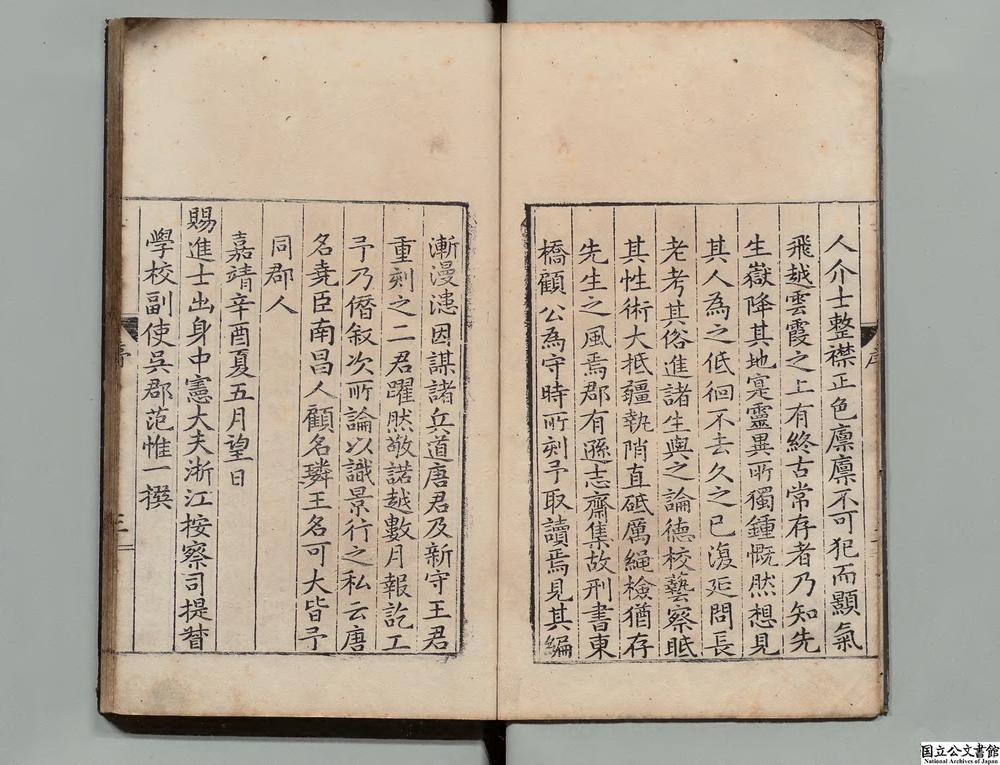 人介士整襟正色凛凛不可犯而顯氣
飛越雲霞之上有終古常存者乃知先
生嶽降其地寔靈異所獨鍾慨然想見
其人為之低徊不去久之已復延問長
老考其俗進諸生與之論德校藝察眂
其性術大抵疆執陗直砥厲繩檢猶存
先生之風焉郡有遜志齋集故刑書東
橋顧公為守時所刻予取讀焉見其編
漸漫漶因謀諸兵道唐君及新守王君
重刻之二君躍然敬諾越數月報訖工
予乃僭叙次所論以識景行之私云唐
名堯臣南昌人顧名璘王名可大皆予
同郡人
嘉靖辛酉夏五月望日
賜進士出身中憲大夫浙江按察司提督
學校副使吳郡范惟一撰
序
三
国立公文書館
National Archives of Japan